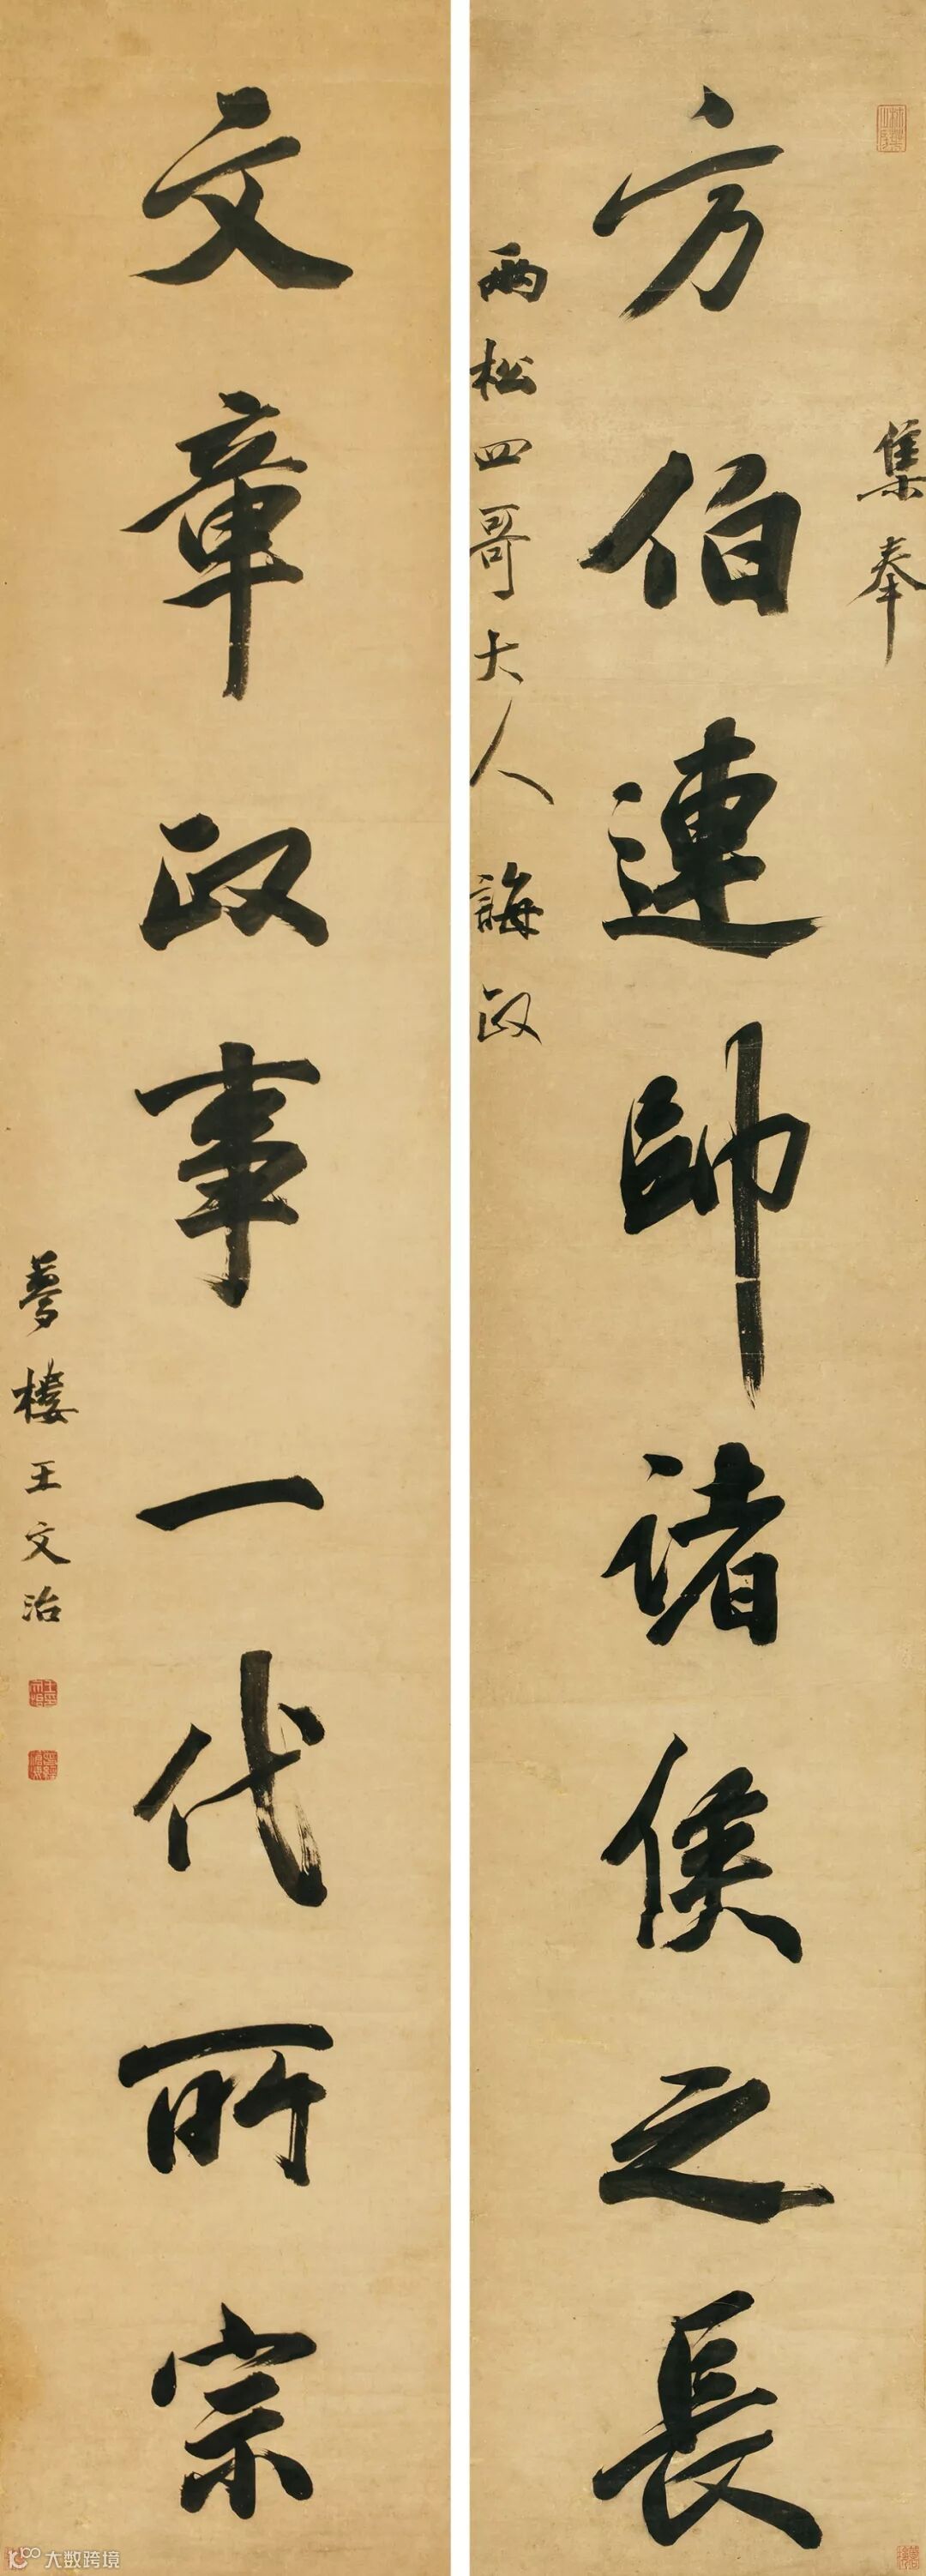 集奉
方伯連帥諸侯之長
兩松四哥大人 誨政
文章政事一代所宗
夢樓王文治
大数跨境